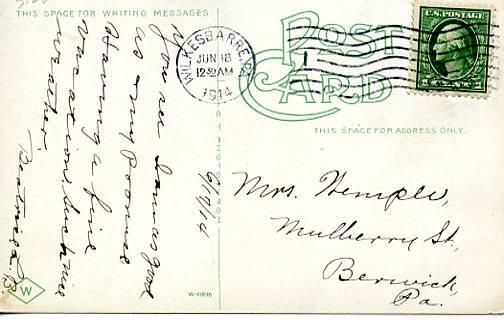 THIS SPACE FOR WRITING MESSAGES
You see I am as good
as my promise
Having a fine
vacation, such nice
weather.
Beatrice B.
6/17/14
W
W-41896
WILKESBARRE, PA
JUN 18
12-30AM
1914
1
POST
CARD
U.S. POSTAGE
1 CENT 1
THIS SPACE FOR ADDRESS ONLY.
Mrs. Hemple,
Mulberry St,
Berwick,
Pa.